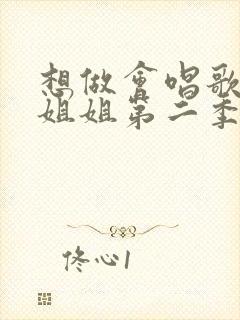 想做會唱歌
姐姐第二季
佟心1